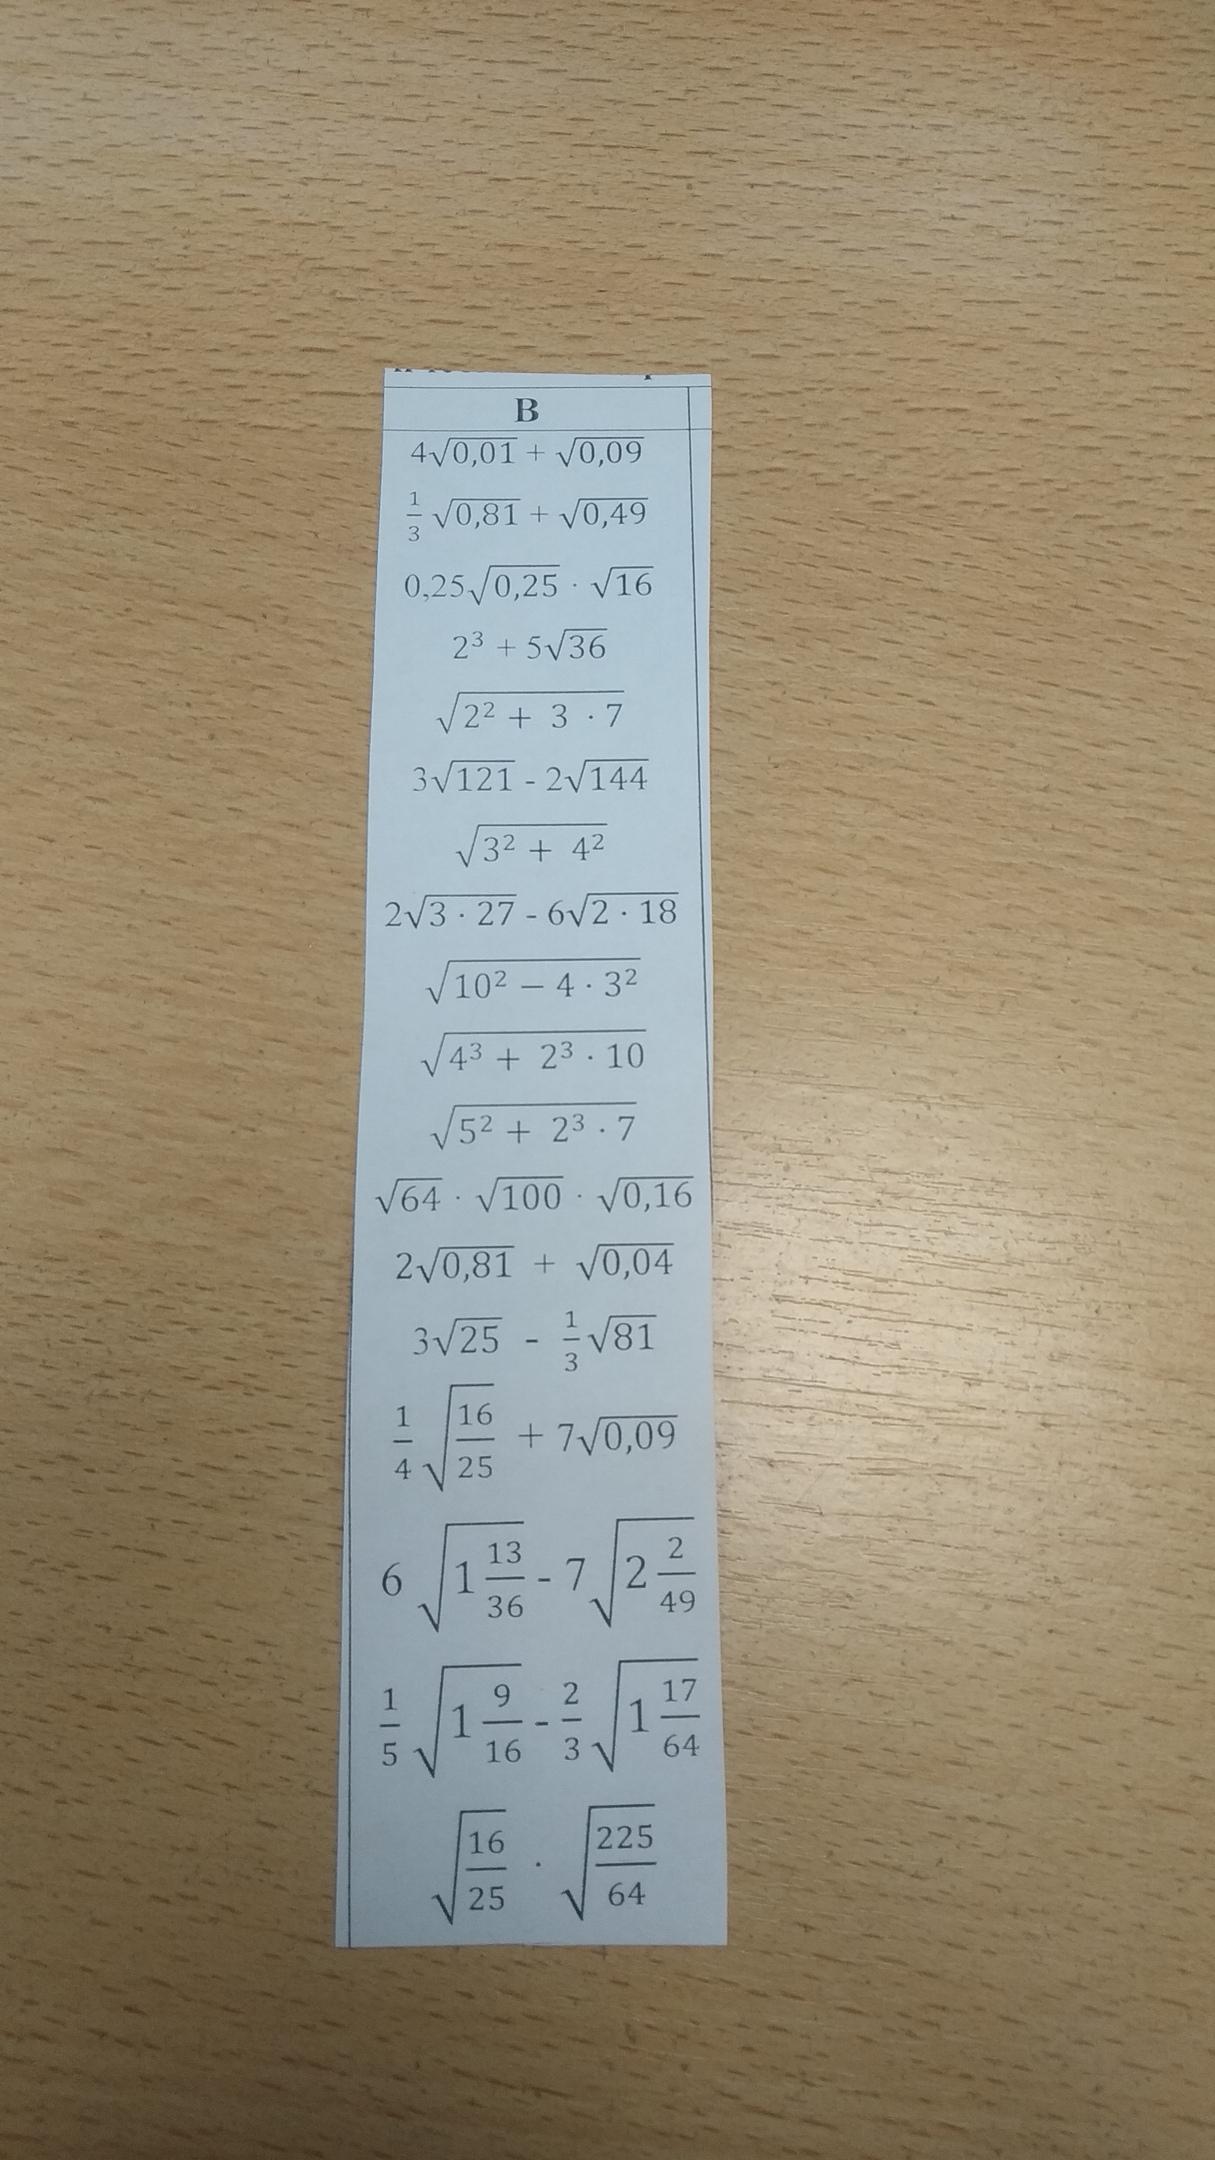 В
4√0,01 + √0,09
1/3 √0,81 + √0,49
0,25√0,25 · √16
2³ + 5√36
√(2² + 3 · 7)
3√121 - 2√144
√(3² + 4²)
2√(3 · 27) - 6√(2 · 18)
√(10² − 4 · 3²)
√(4³ + 2³ · 10)
√(5² + 2³ · 7)
√64 · √100 · √0,16
2√0,81 + √0,04
3√25 - 1/3 √81
1/4 √(16/25) + 7√0,09
6 √(1 13/36) - 7 √(2 2/49)
1/5 √(1 9/16) - 2/3 √(1 17/64)
√(16/25) · √(225/64)